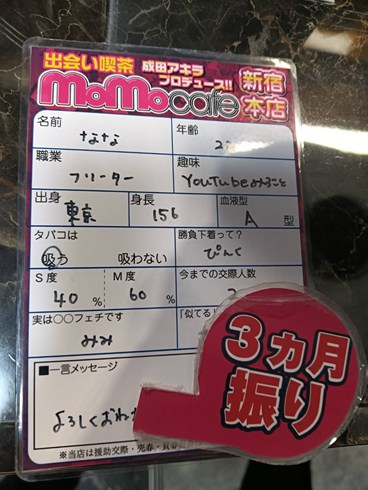 出会い喫茶 成田アキラ
プロデュース!!
MoMocafe
新宿
本店
名前
なな
年齢
職業
フリーター
趣味
YouTubeみること
出身
東京
身長
156
血液型
A 型
タバコは
吸う 吸わない
勝負下着って?
ぴんく
S度
40 %
M度
60 %
今までの交際人数
実は○○フェチです
みみ
「似てる
■一言メッセージ
よろしくおね
※当店は援助交際・売春・
3カ月
振り